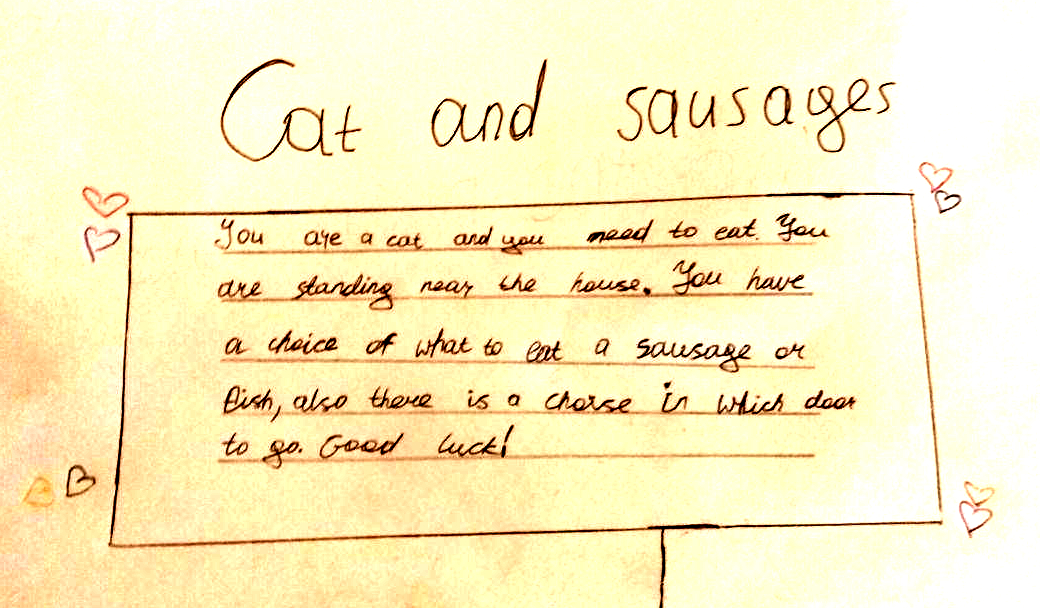 Cat and sausages
You are a cat and you need to eat. You
are standing near the house. You have
a choice of what to eat a sausage or
fish, also there is a chorse in which door
to go. Good luck!